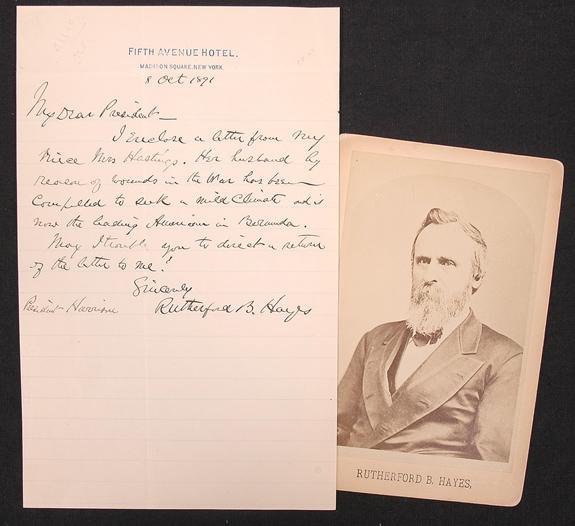 FIFTH AVENUE HOTEL.
MADISON SQUARE, NEW YORK
8 Oct 1891
My Dear President —
I enclose a letter from my
niece Mrs Hastings. Her husband by
reason of wounds in the War has been
compelled to seek a mild climate and is
now the leading American in Bermuda.
May I trouble you to direct a return
of the letter to me!
Sincerely
Rutherford B. Hayes
President Harrison
RUTHERFORD B. HAYES,